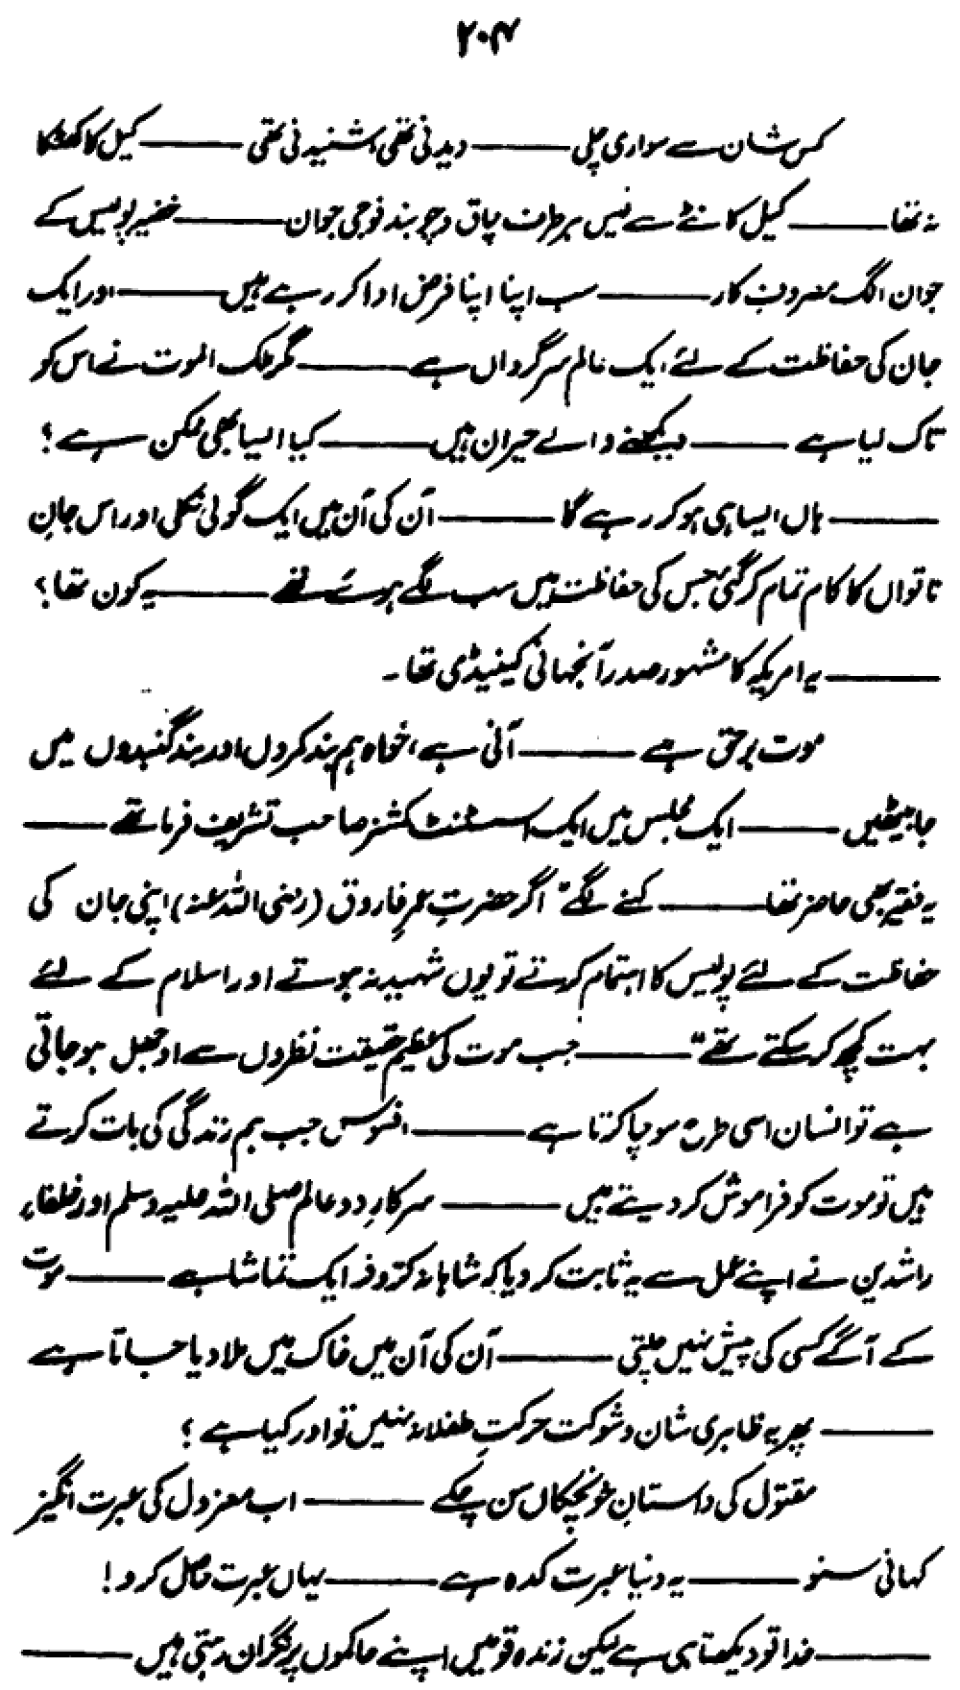 ۲۰۴
کس شان سے سواری چلی ـــــ دیدنی تھی، شنیدنی تھی ـــــ کیل کا کھٹکا
نہ تھا ـــــ کیل کانٹے سے لیس ہر طرف چاق و چوبند فوجی جوان ـــــ خفیہ پولیس کے
جوان الگ مصروفِ کار ـــــ سب اپنا اپنا فرض ادا کر رہے ہیں ـــــ اور ایک
جان کی حفاظت کے لئے ایک عالم سرگرداں ہے ـــــ مگر ملک الموت نے اس کو
تاک لیا ہے ـــــ دیکھنے والے حیران ہیں ـــــ کیا ایسا بھی ممکن ہے؟
ـــــ ہاں ایسا ہی ہو کر رہے گا ـــــ آن کی آن میں ایک گولی نکلی اور اس جانِ
ناتواں کا کام تمام کر گئی جس کی حفاظت میں سب لگے ہوئے تھے ـــــ یہ کون تھا؟
ـــــ یہ امریکہ کا مشہور صدر آنجہانی کینیڈی تھا۔
موت برحق ہے ـــــ آنی ہے، خواہ ہم بند کمروں اور بند گنبدوں میں
جا بیٹھیں ـــــ ایک مجلس میں ایک اسسٹنٹ کمشنر صاحب تشریف فرما تھے ـــــ
یہ فقیر بھی حاضر تھا ـــــ کہنے لگے "اگر حضرتِ عمرِ فاروق (رضی اللہ عنہ) اپنی جان کی
حفاظت کے لئے پولیس کا اہتمام کرتے تو یوں شہید نہ ہوتے اور اسلام کے لئے
بہت کچھ کر سکتے تھے" ـــــ جب موت کی عظیم حقیقت نظروں سے اوجھل ہو جاتی
ہے تو انسان اسی طرح سوچا کرتا ہے ـــــ افسوس جب ہم زندگی کی بات کرتے
ہیں تو موت کو فراموش کر دیتے ہیں ـــــ سرکارِ دو عالم صلی اللہ علیہ وسلم اور خلفاءِ
راشدین نے اپنے عمل سے یہ ثابت کر دیا کہ شاہانہ کروفر ایک تماشا ہے ـــــ موت
کے آگے کسی کی پیش نہیں چلتی ـــــ آن کی آن میں خاک میں ملا دیا جاتا ہے
ـــــ پھر یہ ظاہری شان و شوکت حرکتِ طفلانہ نہیں تو اور کیا ہے؟
مقتول کی داستانِ خونچکاں سن چکے ـــــ اب معزول کی عبرت انگیز
کہانی سنو ـــــ یہ دنیا عبرت کدہ ہے ـــــ یہاں عبرت حاصل کرو!
ـــــ خدا تو دیکھتا ہی ہے لیکن زندہ قومیں اپنے حاکموں پر نگران رہتی ہیں ـــــ